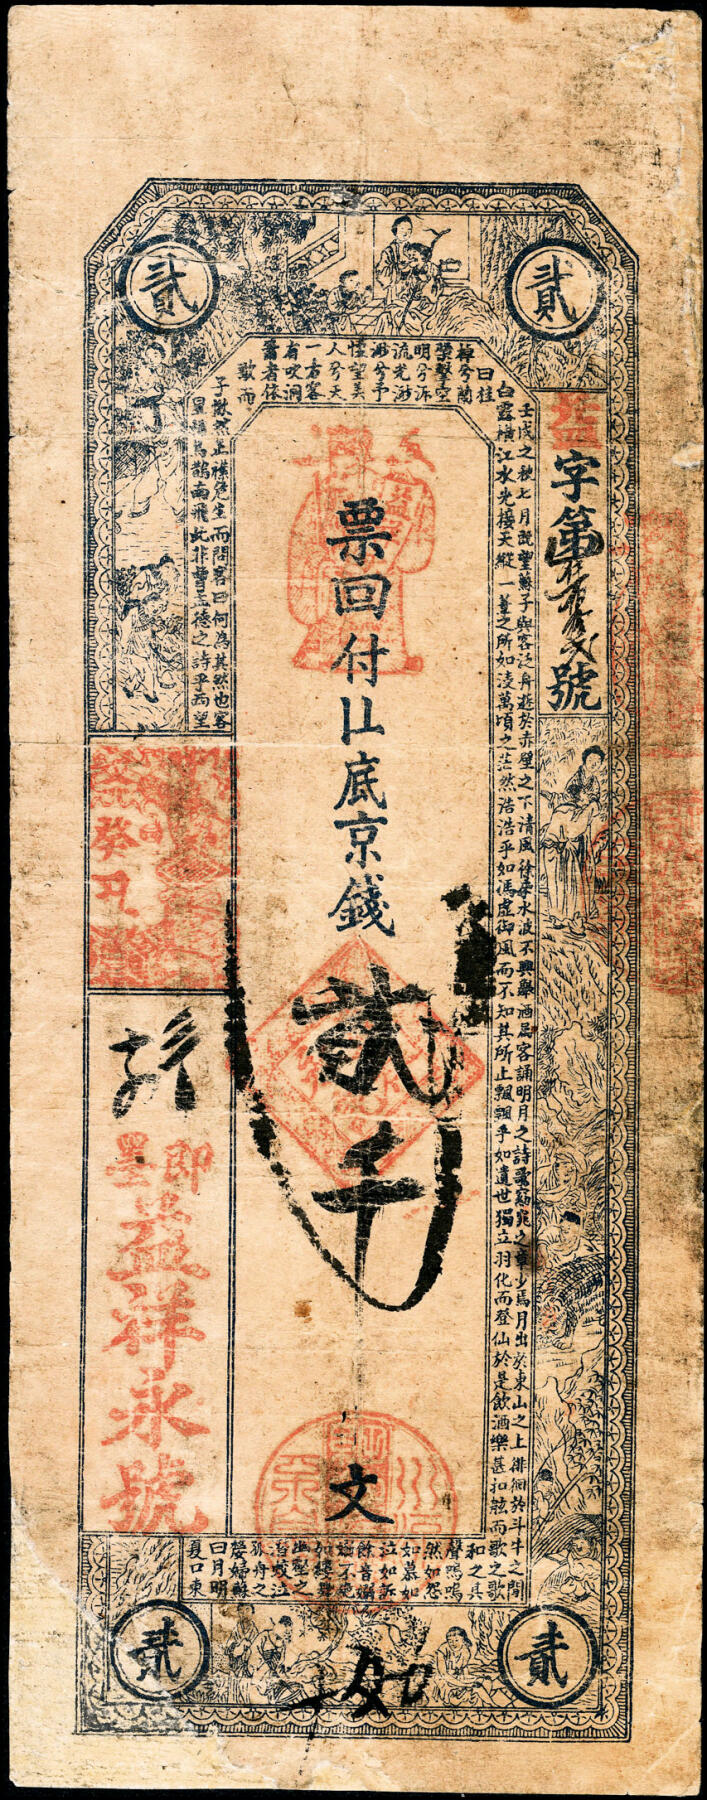 貳
貳
益字第
號
壬戌之秋七月既望蘇子與客泛舟遊於赤壁之下清風徐來水波不興舉酒屬客誦明月之詩歌窈窕之章少焉月出於東山之上徘徊於斗牛之間
白露橫江水光接天縱一葦之所如凌萬頃之茫然浩浩乎如馮虛御風而不知其所止飄飄乎如遺世獨立羽化而登仙於是飲酒樂甚扣舷而歌之歌
曰桂
棹兮蘭
槳擊空
明兮泝
流光渺
渺兮予
懷望美
人兮天
一方客
有吹洞
簫者依
歌而
和之其
聲嗚嗚
然如怨
如慕如
泣如訴
餘音嫋
嫋不絕
如縷舞
幽壑之
潛蛟泣
孤舟之
嫠婦蘇
子愀然正襟危坐而問客曰何為其然也客
曰月明
星稀烏鵲南飛此非曹孟德之詩乎西望
夏口東
票回付
底京錢貳千文
癸丑
即墨
益祥永號
貳
貳